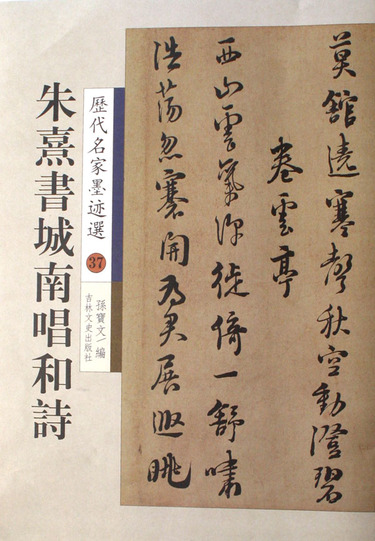 莫館遶寒聲秋空動澄碧
卷雲亭
西山雲氣深徙倚一舒嘯
浩蕩忽褰開為君展遐眺
歷代名家墨迹選 37
孫寶文/編
吉林文史出版社
朱熹書城南唱和詩